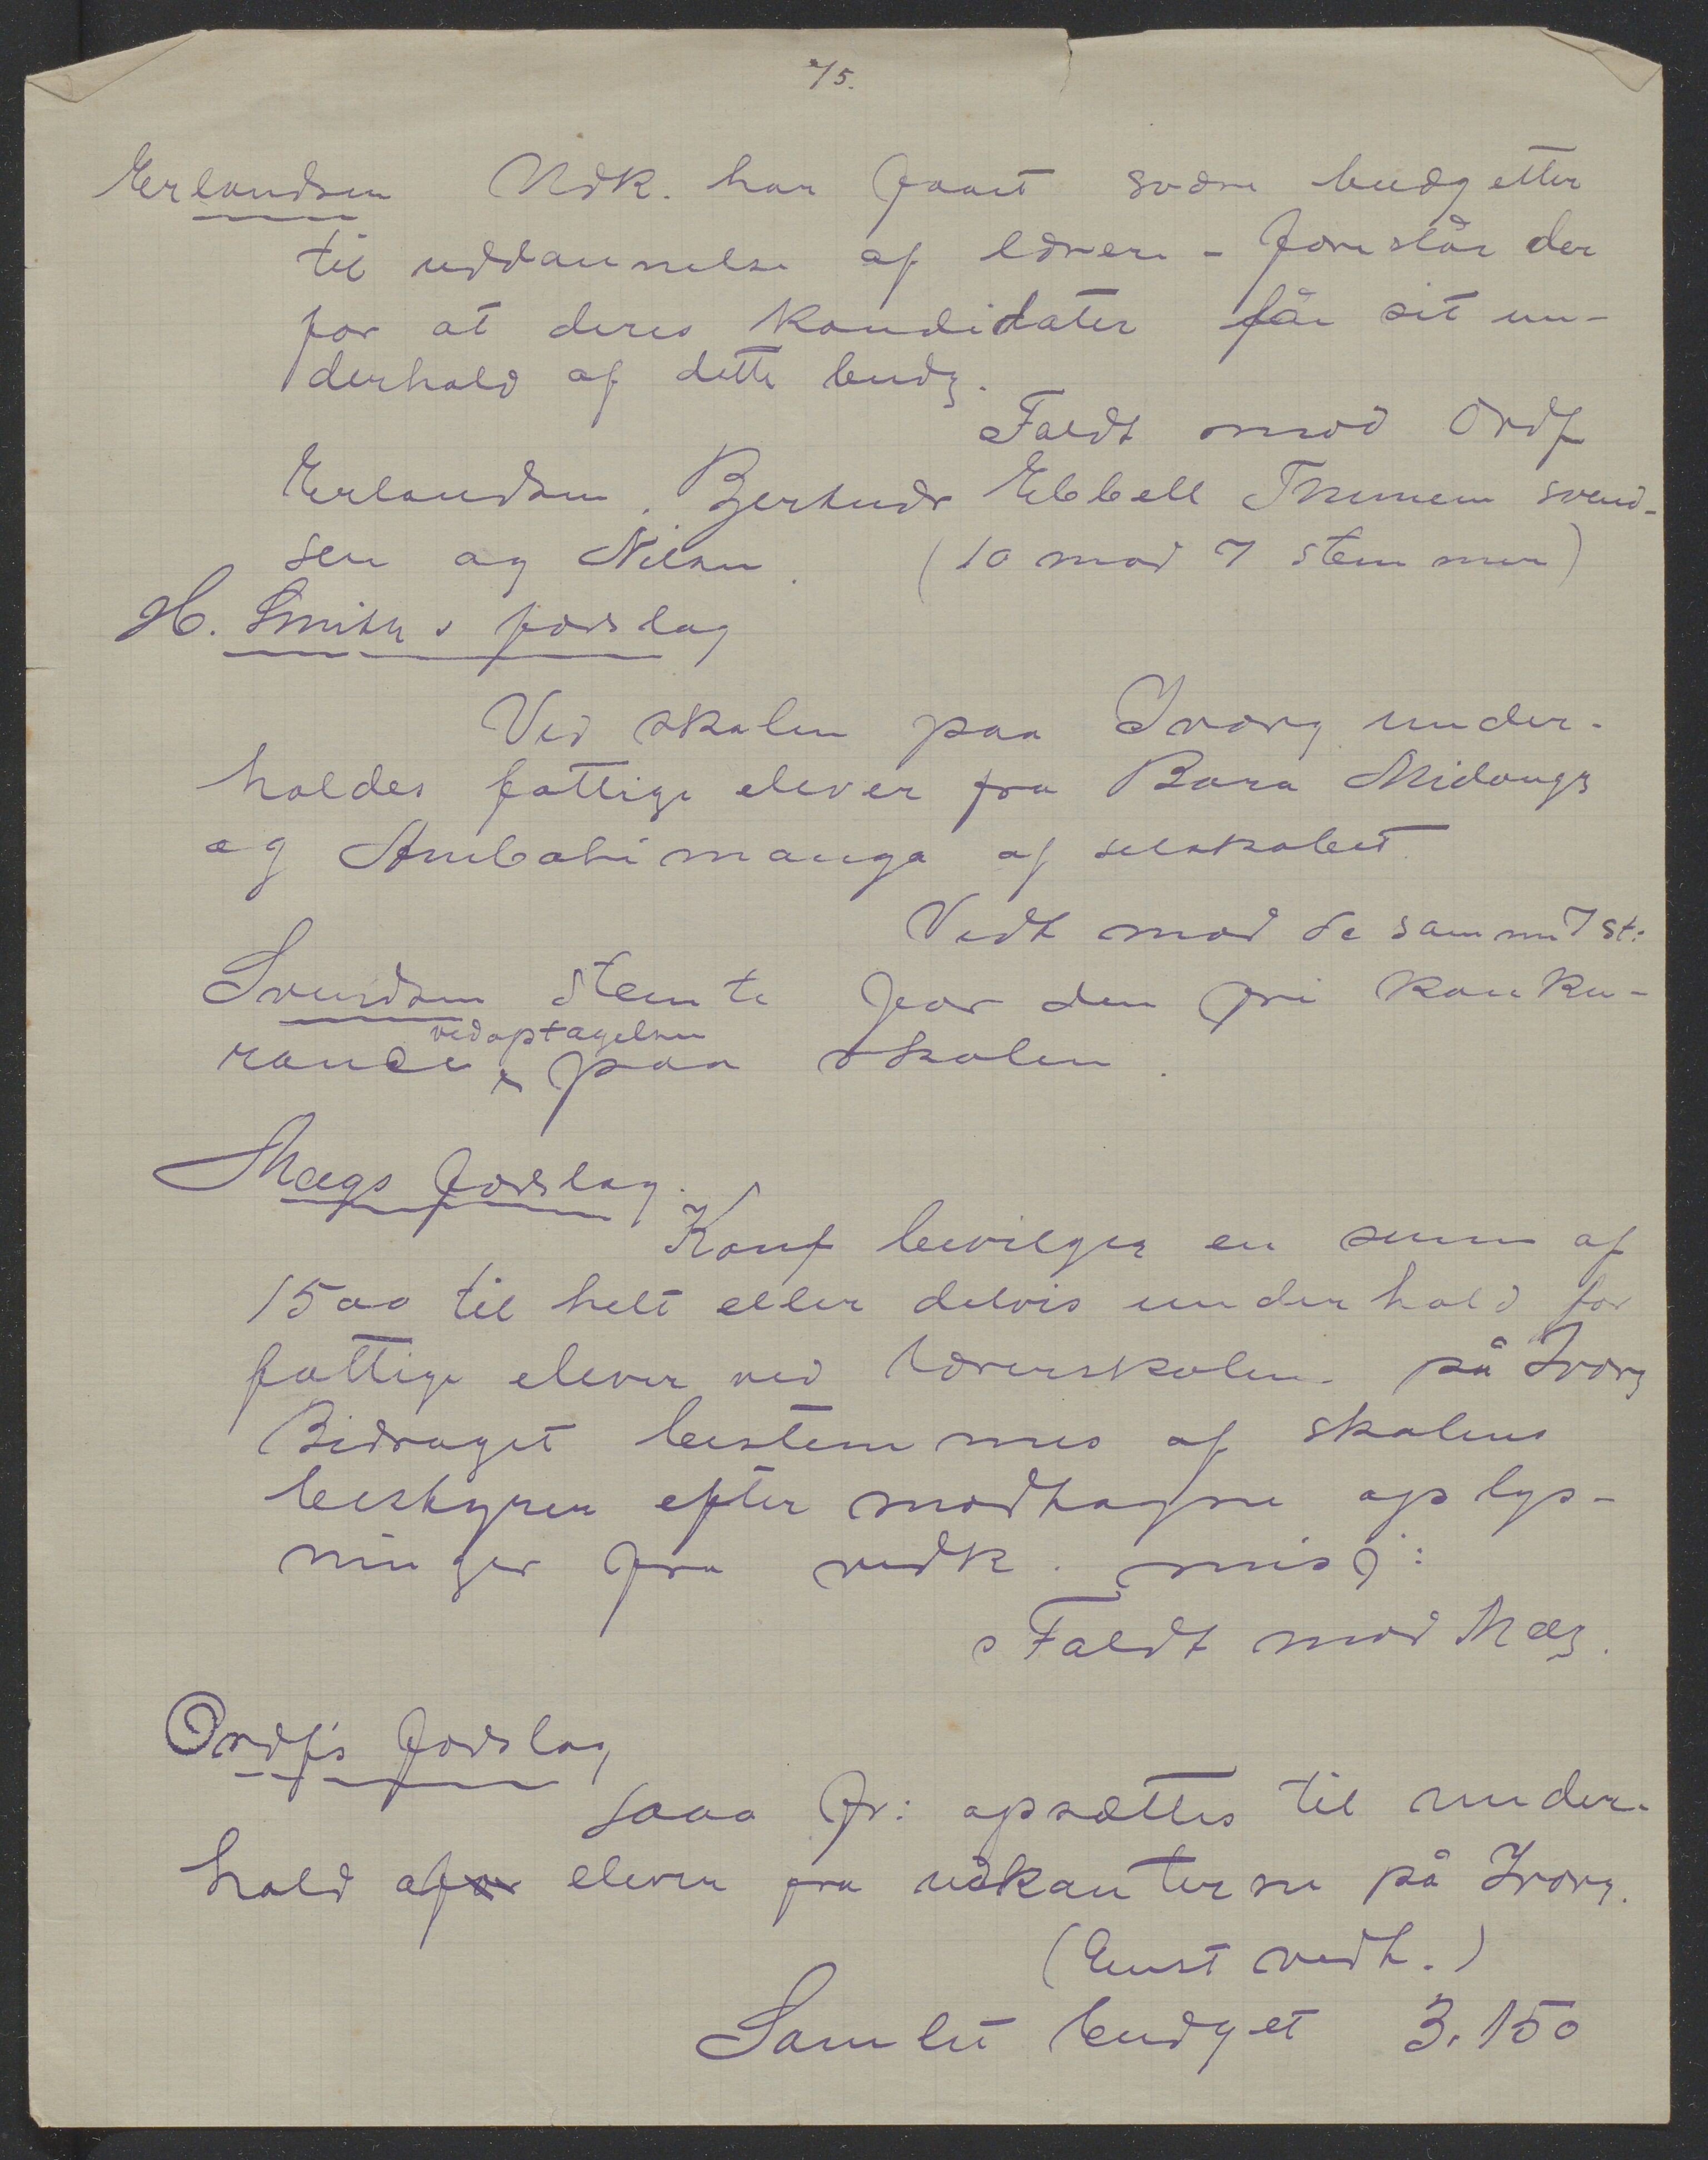 75.
Erlandsen Udk. har faaet større budgetter
til uddannelse af lærere - foreslår der
for at deres kandidater får sit un-
derhold af dette budg.
Faldt mod Ordf
Erlandsen, Bjertnæs Ebbell Thunem Svend-
sen og Nilsen. (10 mod 7 stemmer)
H. Smiths forslag
Ved skolen paa Ivory under-
holdes fattige elever fra Bara Midongy
og Ambohimanga af selskabet
Vedt mod de samme 7 st:
Svendsen stemte for den fri konku-
ved optagelsen
rance paa skolen.
Mægs forslag.
Konf bevilger en sum af
1500 til helt eller delvis underhold for
fattige elever ved lærerskolen på Ivory
Bidraget bestemmes af skolens
bestyrer efter modtagne oplys-
ninger fra vedk. misj:
Faldt mod Mæg.
Ordf's forslag
1000 fr: opsættes til under-
hold af elever fra udkanterne på Ivory.
(Enst vedt.)
Samlet budget 3.150